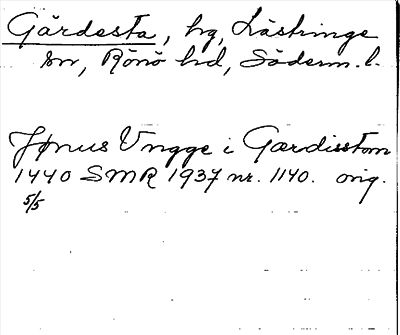 Gärdesta, hg, Lästringe
sn, Rönö hd, Söderm. l.
Jønus Vngge i Gærdisstom
1440 SMR 1937 nr. 1140. orig.
5/5